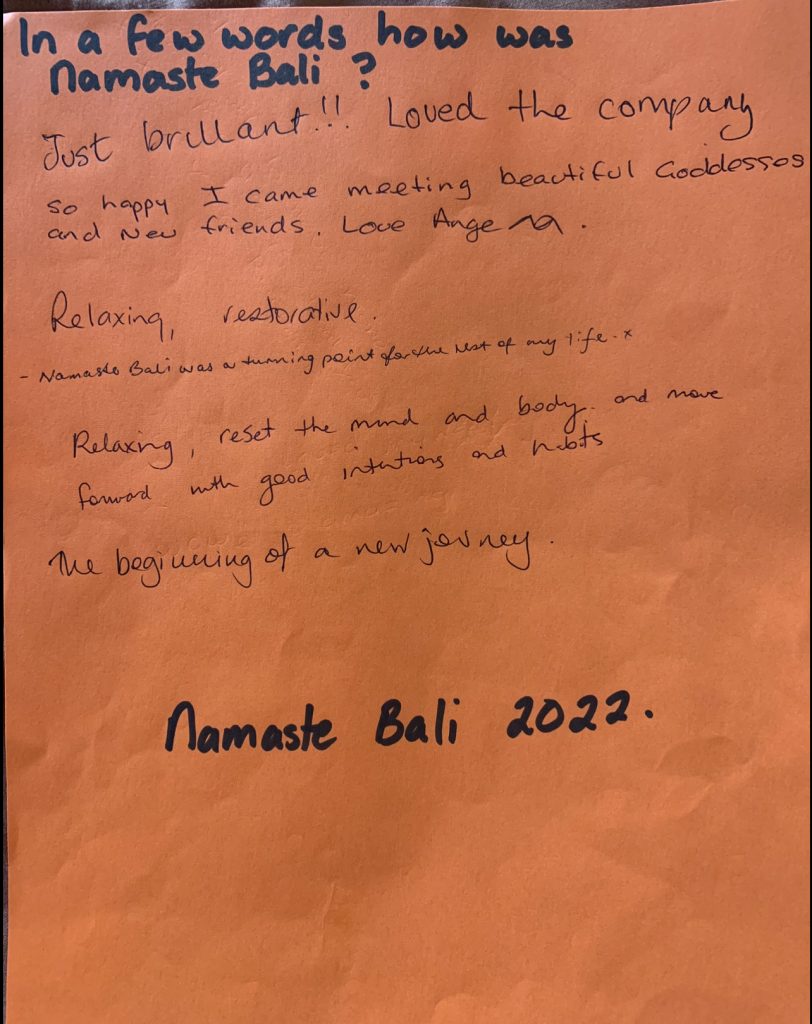 In a few words how was
Namaste Bali ?
Just brillant!! Loved the company
so happy I came meeting beautiful Goddesses
and New friends. Love Ange
Relaxing, restorative.
- Namaste Bali was a turning point for the rest of my life. x
Relaxing, reset the mind and body. and move
forward with good intentions and habits
The beginning of a new jouney.
Namaste Bali 2022.